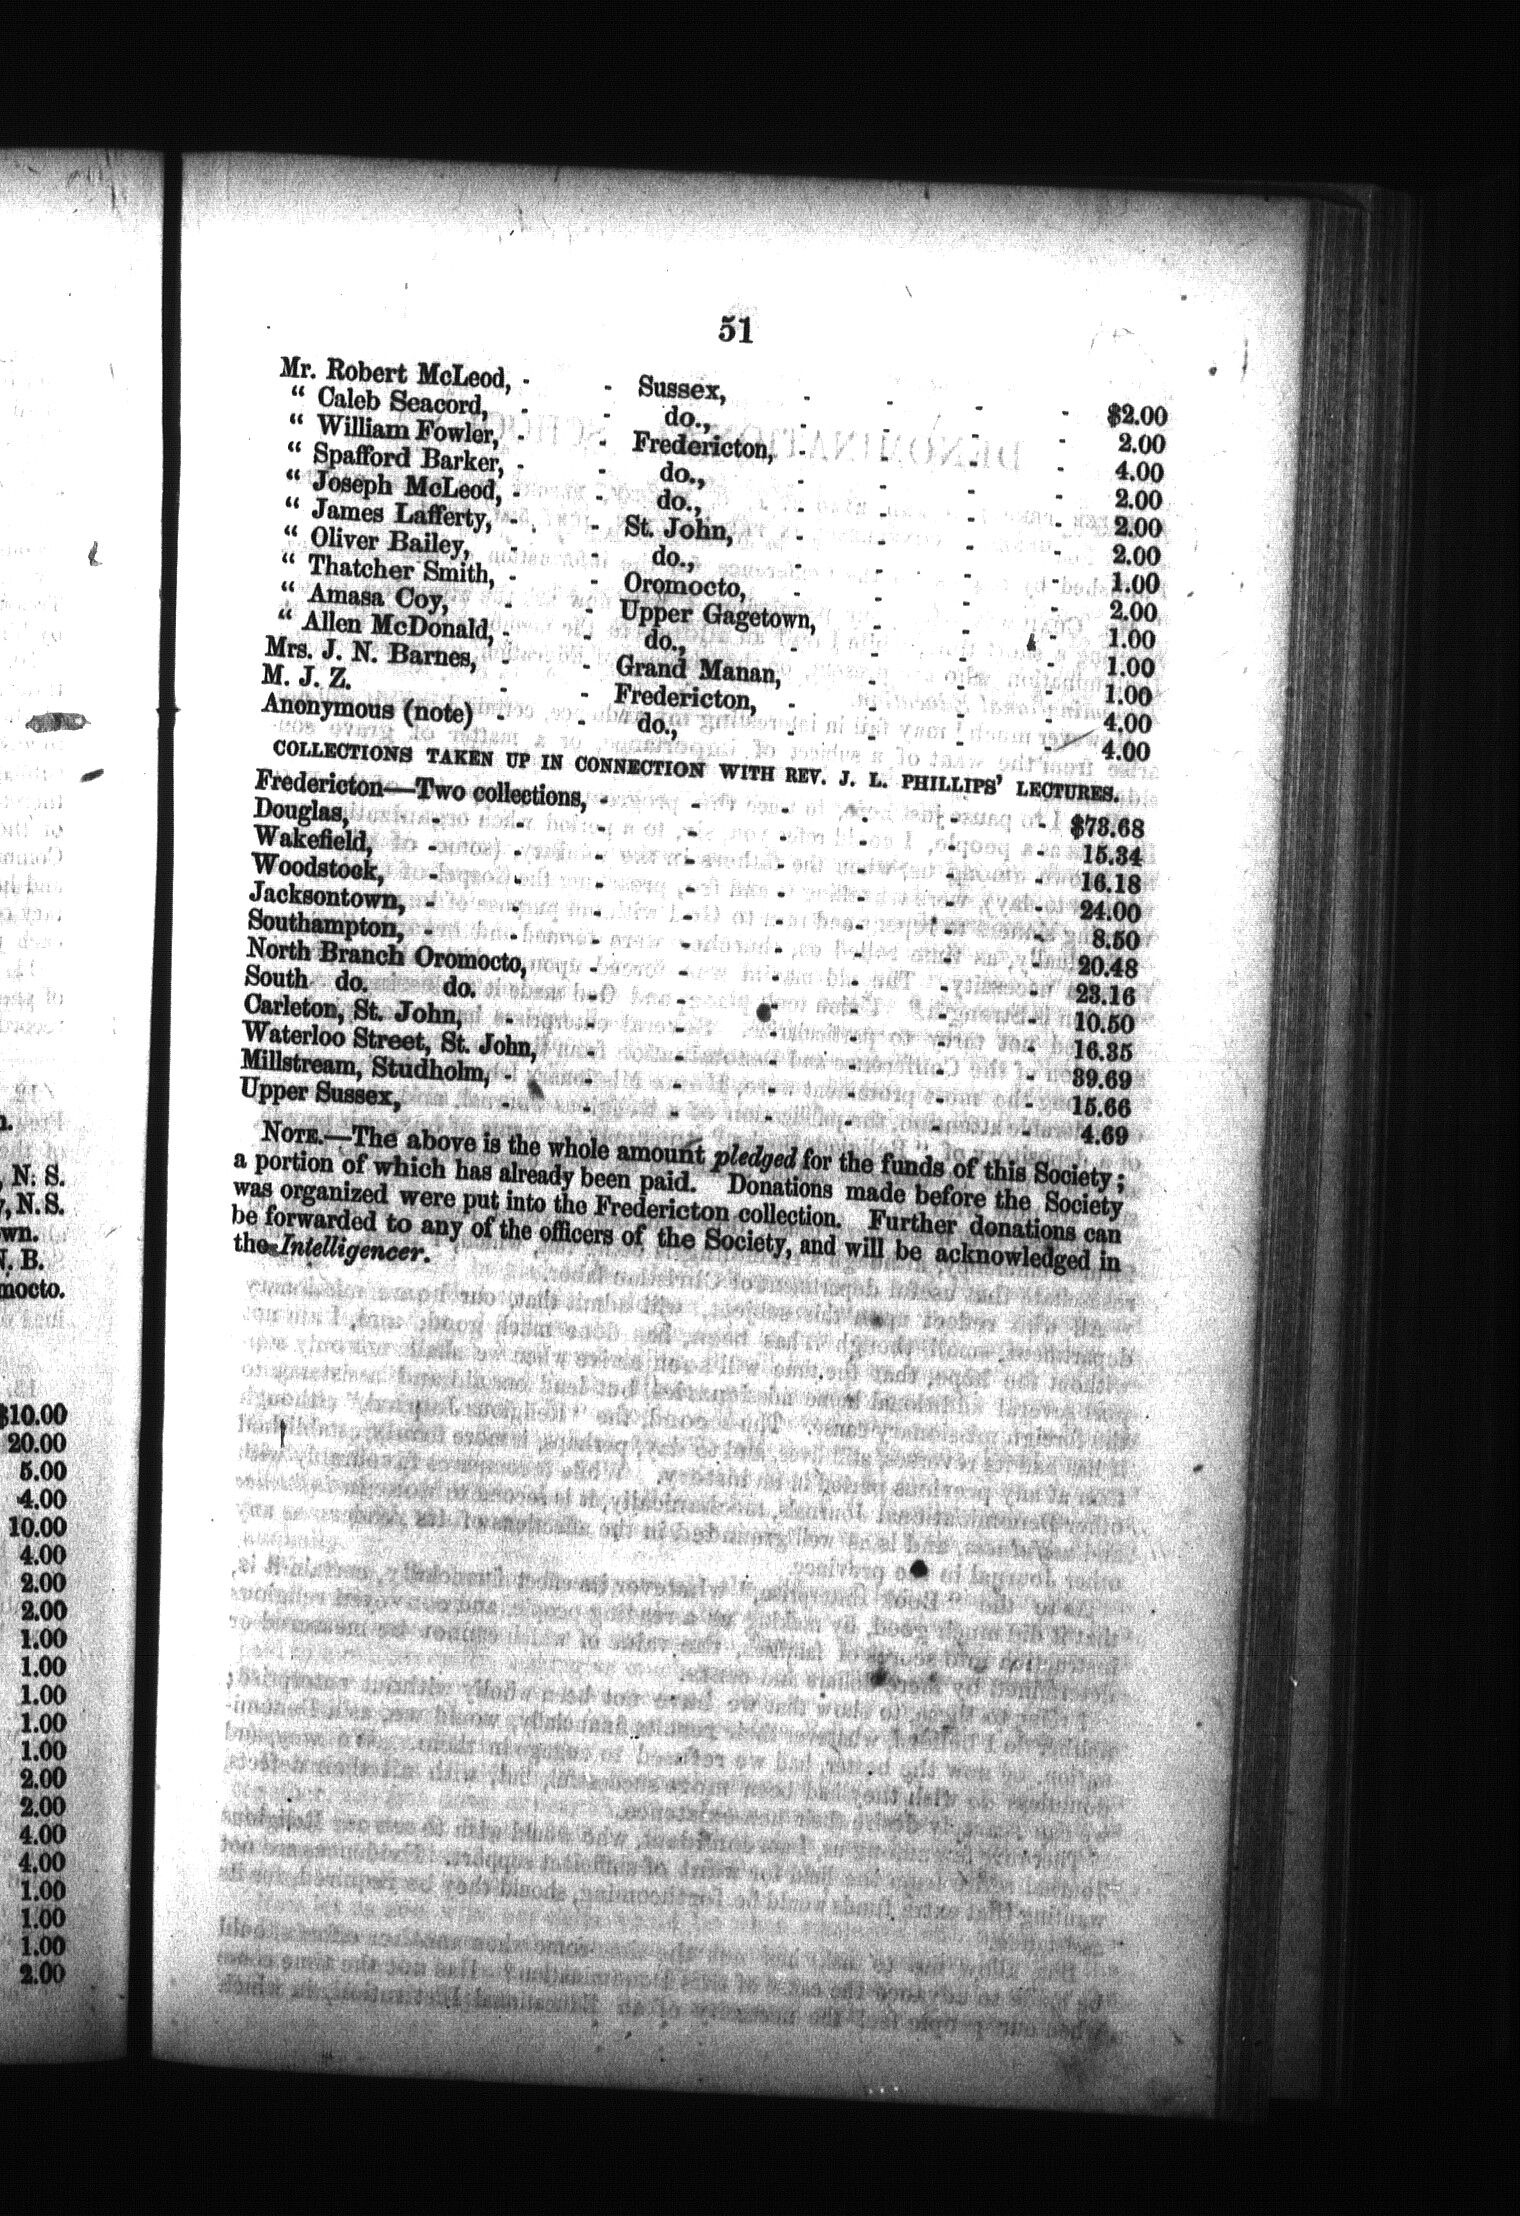 51
Mr. Robert McLeod, - - Sussex, - - - - $2.00
" Caleb Seacord, - - do., - - - - 2.00
" William Fowler, - - Fredericton, - - - - 4.00
" Spafford Barker, - - do., - - - - 2.00
" Joseph McLeod, - - do., - - - - 2.00
" James Lafferty, - - St. John, - - - - 2.00
" Oliver Bailey, - - do., - - - - 1.00
" Thatcher Smith, - - Oromocto, - - - - 2.00
" Amasa Coy, - - Upper Gagetown, - - - 1.00
" Allen McDonald, - - do., - - - - 1.00
Mrs. J. N. Barnes, - - Grand Manan, - - - 1.00
M. J. Z. - - Fredericton, - - - - 4.00
Anonymous (note) - - do., - - - - 4.00
COLLECTIONS TAKEN UP IN CONNECTION WITH REV. J. L. PHILLIPS' LECTURES.
Fredericton—Two collections, - - - - - - $73.68
Douglas, - - - - - - - - 15.34
Wakefield, - - - - - - - - 16.18
Woodstock, - - - - - - - - 24.00
Jacksontown, - - - - - - - - 8.50
Southampton, - - - - - - - - 20.48
North Branch Oromocto, - - - - - - 23.16
South do. do. - - - - - - 10.50
Carleton, St. John, - - - - - - - 16.35
Waterloo Street, St. John, - - - - - - 39.69
Millstream, Studholm, - - - - - - - 15.66
Upper Sussex, - - - - - - - 4.69
NOTE.—The above is the whole amount pledged for the funds of this Society;
a portion of which has already been paid. Donations made before the Society
was organized were put into the Fredericton collection. Further donations can
be forwarded to any of the officers of the Society, and will be acknowledged in
the Intelligencer.
N. S.
N. S.
N. B.
$10.00
20.00
5.00
4.00
10.00
4.00
2.00
2.00
1.00
1.00
1.00
1.00
1.00
2.00
2.00
4.00
4.00
1.00
1.00
1.00
2.00